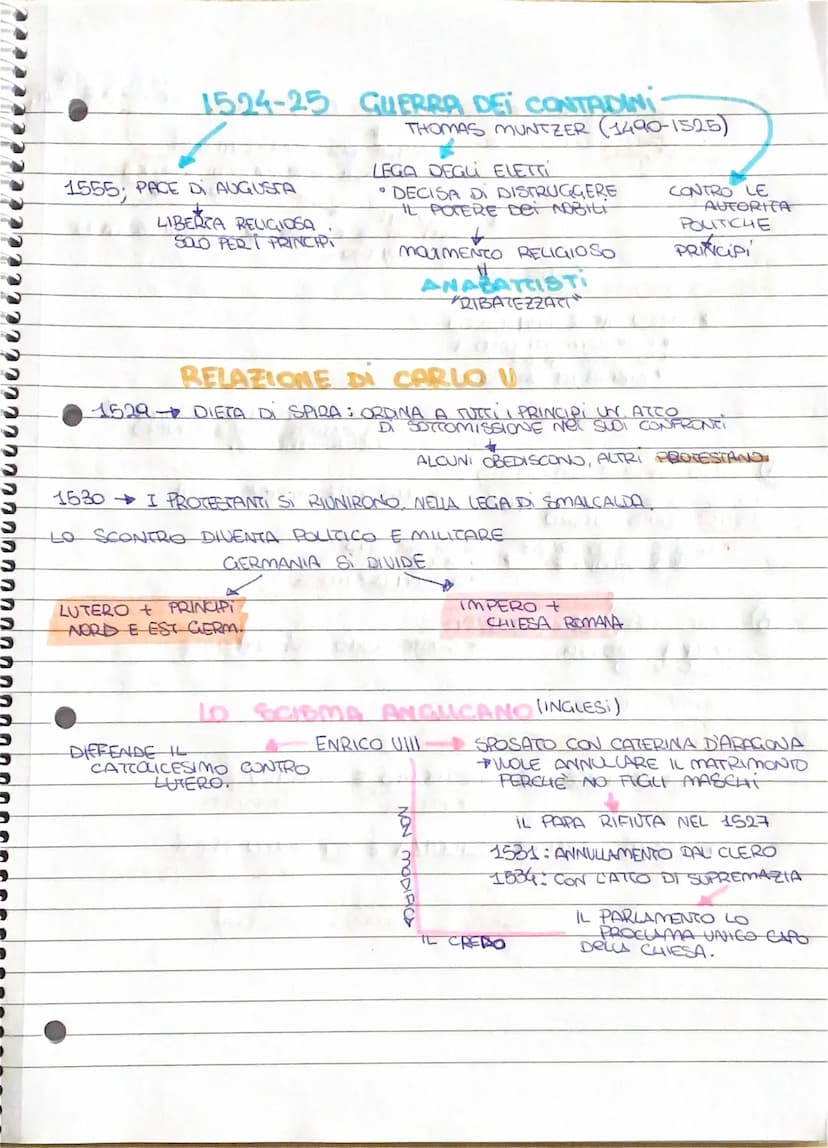 1524-25 GUERRA DEI CONTADINI
THOMAS MUNTZER (1490-1525)
1555; PACE DI AUGUSTA
LIBERTA RELIGIOSA
SOLO PER I PRINCIPI
LEGA DEGLI ELETTI
• DECISA DI DISTRUGGERE
IL POTERE DEI NOBILI
MOVIMENTO RELIGIOSO
ANABATTISTI
"RIBATEZZATI"
CONTRO LE
AUTORITA
POLITICHE
PRINCIPI
RELAZIONE DI CARLO V
1529 → DIETA DI SPIRA: ORDINA A TUTTI I PRINCIPI UN ATTO
DI SOTTOMISSIONE NEI SUOI CONFRONTI
ALCUNI OBEDISCONO, ALTRI PROTESTANO.
1530 → I PROTESTANTI SI RIUNIRONO, NELLA LEGA DI SMALCALDA.
LO SCONTRO DIVENTA POLITICO E MILITARE
GERMANIA SI DIVIDE
LUTERO + PRINCIPI
NORD E EST GERM.
IMPERO +
CHIESA ROMANA
LO SCISMA ANGLICANO (INGLESI)
DIFFENDE IL
CATTOLICESIMO CONTRO
LUTERO.
← ENRICO VIII →
SPOSATO CON CATERINA D'ARAGONA
→ VUOLE ANNULARE IL MATRIMONTO
PERCHÈ NO FIGLI MASCHI
IL PAPA RIFIUTA NEL 1527
1531: ANNULLAMENTO DAL CLERO
1534: CON L'ATTO DI SUPREMAZIA
IL PARLAMENTO LO
PROCLAMA UNICO CAPO
DELLA CHIESA.
NON
IL CREDO